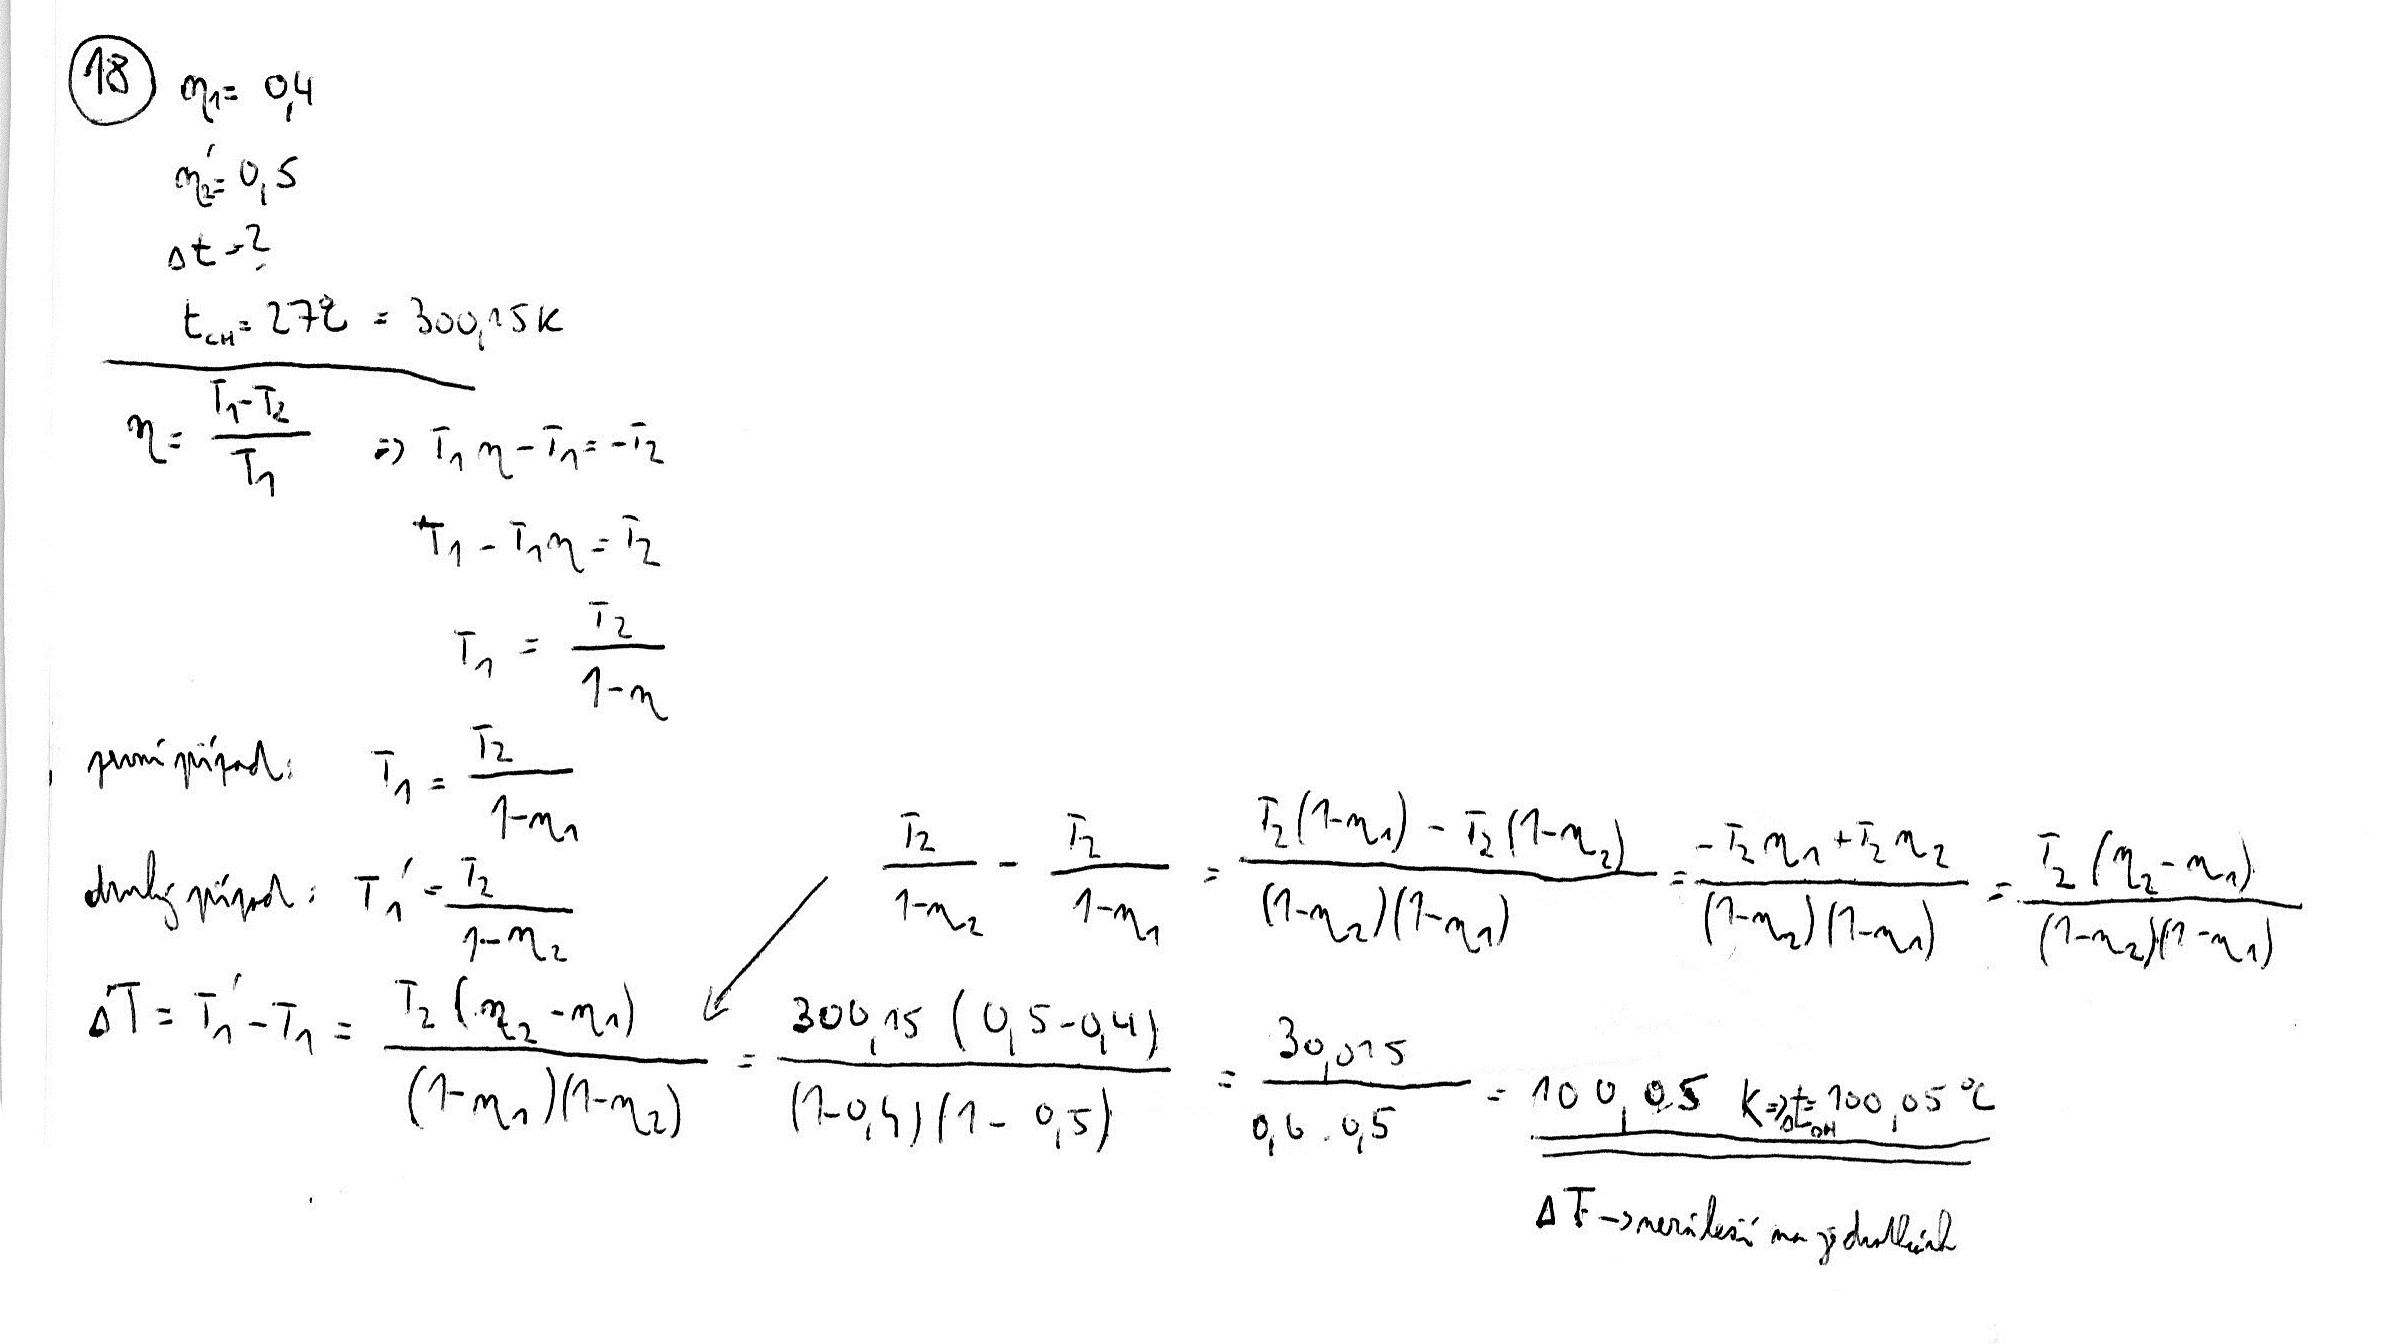 18 η₁= 0,4
η₂'= 0,5
Δt=?
t_CH= 27°C = 300,15K
η= (T₁-T₂)/T₁ => T₁η-T₁=-T₂
T₁-T₁η=T₂
T₁ = T₂/(1-η)
první případ: T₁ = T₂/(1-η₁)
druhý případ: T₁' = T₂/(1-η₂)
T₂/(1-η₂) - T₂/(1-η₁) = (T₂(1-η₁) - T₂(1-η₂))/((1-η₂)(1-η₁)) = (-T₂η₁+T₂η₂)/((1-η₂)(1-η₁)) = T₂(η₂-η₁)/((1-η₂)(1-η₁))
ΔT = T₁'-T₁ = T₂(η₂-η₁)/((1-η₁)(1-η₂)) = 300,15(0,5-0,4)/((1-0,4)(1-0,5)) = 30,015/(0,6.0,5) = 100,05 K => Δt_OH= 100,05°C
ΔT -> nezáleží na jednotkách